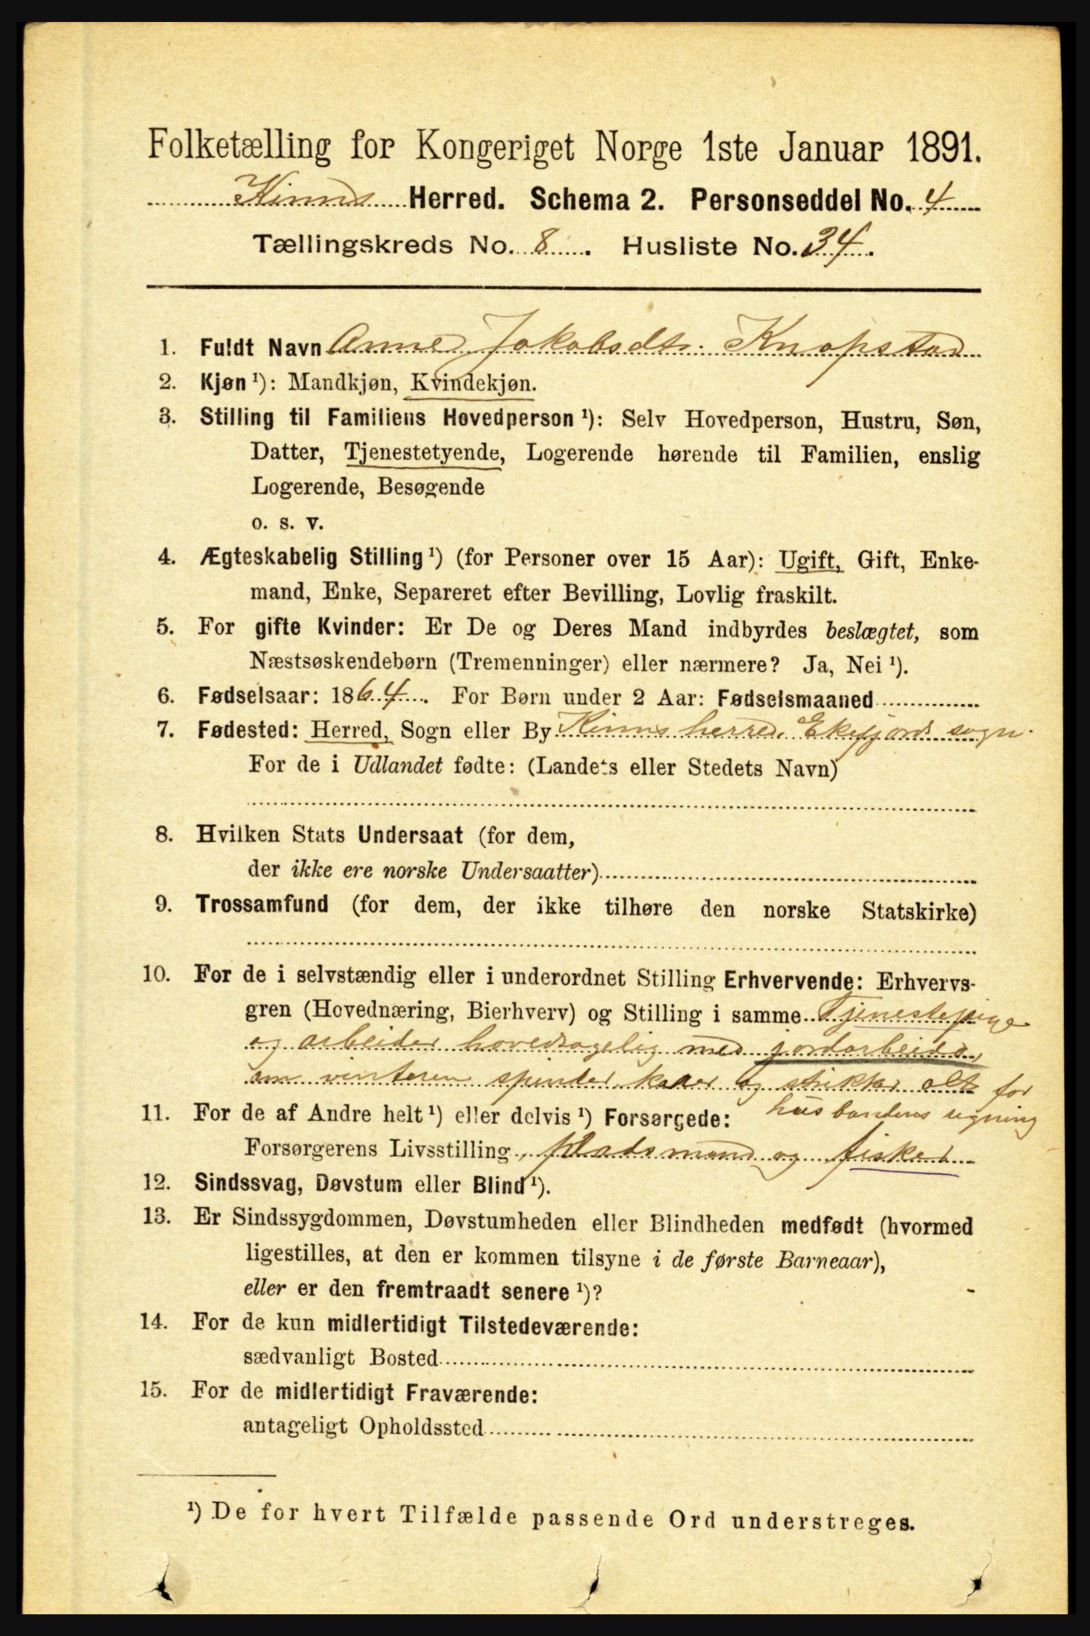 Folketælling for Kongeriget Norge 1ste Januar 1891.
Kinns Herred. Schema 2. Personseddel No. 4
Tællingskreds No. 8. Husliste No. 34.
1. Fuldt Navn Anne Jakobsdtr. Knapstad
2. Kjøn ¹): Mandkjøn, Kvindekjøn.
3. Stilling til Familiens Hovedperson ¹): Selv Hovedperson, Hustru, Søn,
Datter, Tjenestetyende, Logerende hørende til Familien, enslig
Logerende, Besøgende
o. s. v.
4. Ægteskabelig Stilling ¹) (for Personer over 15 Aar): Ugift, Gift, Enke-
mand, Enke, Separeret efter Bevilling, Lovlig fraskilt.
5. For gifte Kvinder: Er De og Deres Mand indbyrdes beslægtet, som
Næstsøskendebørn (Tremenninger) eller nærmere? Ja, Nei ¹).
6. Fødselsaar: 1864. For Børn under 2 Aar: Fødselsmaaned
7. Fødested: Herred, Sogn eller By Kinns herred, Ekefjord sogn.
For de i Udlandet fødte: (Landets eller Stedets Navn)
8. Hvilken Stats Undersaat (for dem,
der ikke ere norske Undersaatter)
9. Trossamfund (for dem, der ikke tilhøre den norske Statskirke)
10. For de i selvstændig eller i underordnet Stilling Erhvervende: Erhvervs-
gren (Hovednæring, Bierhverv) og Stilling i samme Tjenestepige
og arbeider hovedsagelig med jordarbeide,
om vinteren spinder, karer og strikker alt for
husbondens regning
11. For de af Andre helt ¹) eller delvis ¹) Forsørgede:
Forsørgerens Livsstilling pladsmand og fisker
12. Sindssvag, Døvstum eller Blind ¹).
13. Er Sindssygdommen, Døvstumheden eller Blindheden medfødt (hvormed
ligestilles, at den er kommen tilsyne i de første Barneaar),
eller er den fremtraadt senere ¹)?
14. For de kun midlertidigt Tilstedeværende:
sædvanligt Bosted
15. For de midlertidigt Fraværende:
antageligt Opholdssted
¹) De for hvert Tilfælde passende Ord understreges.